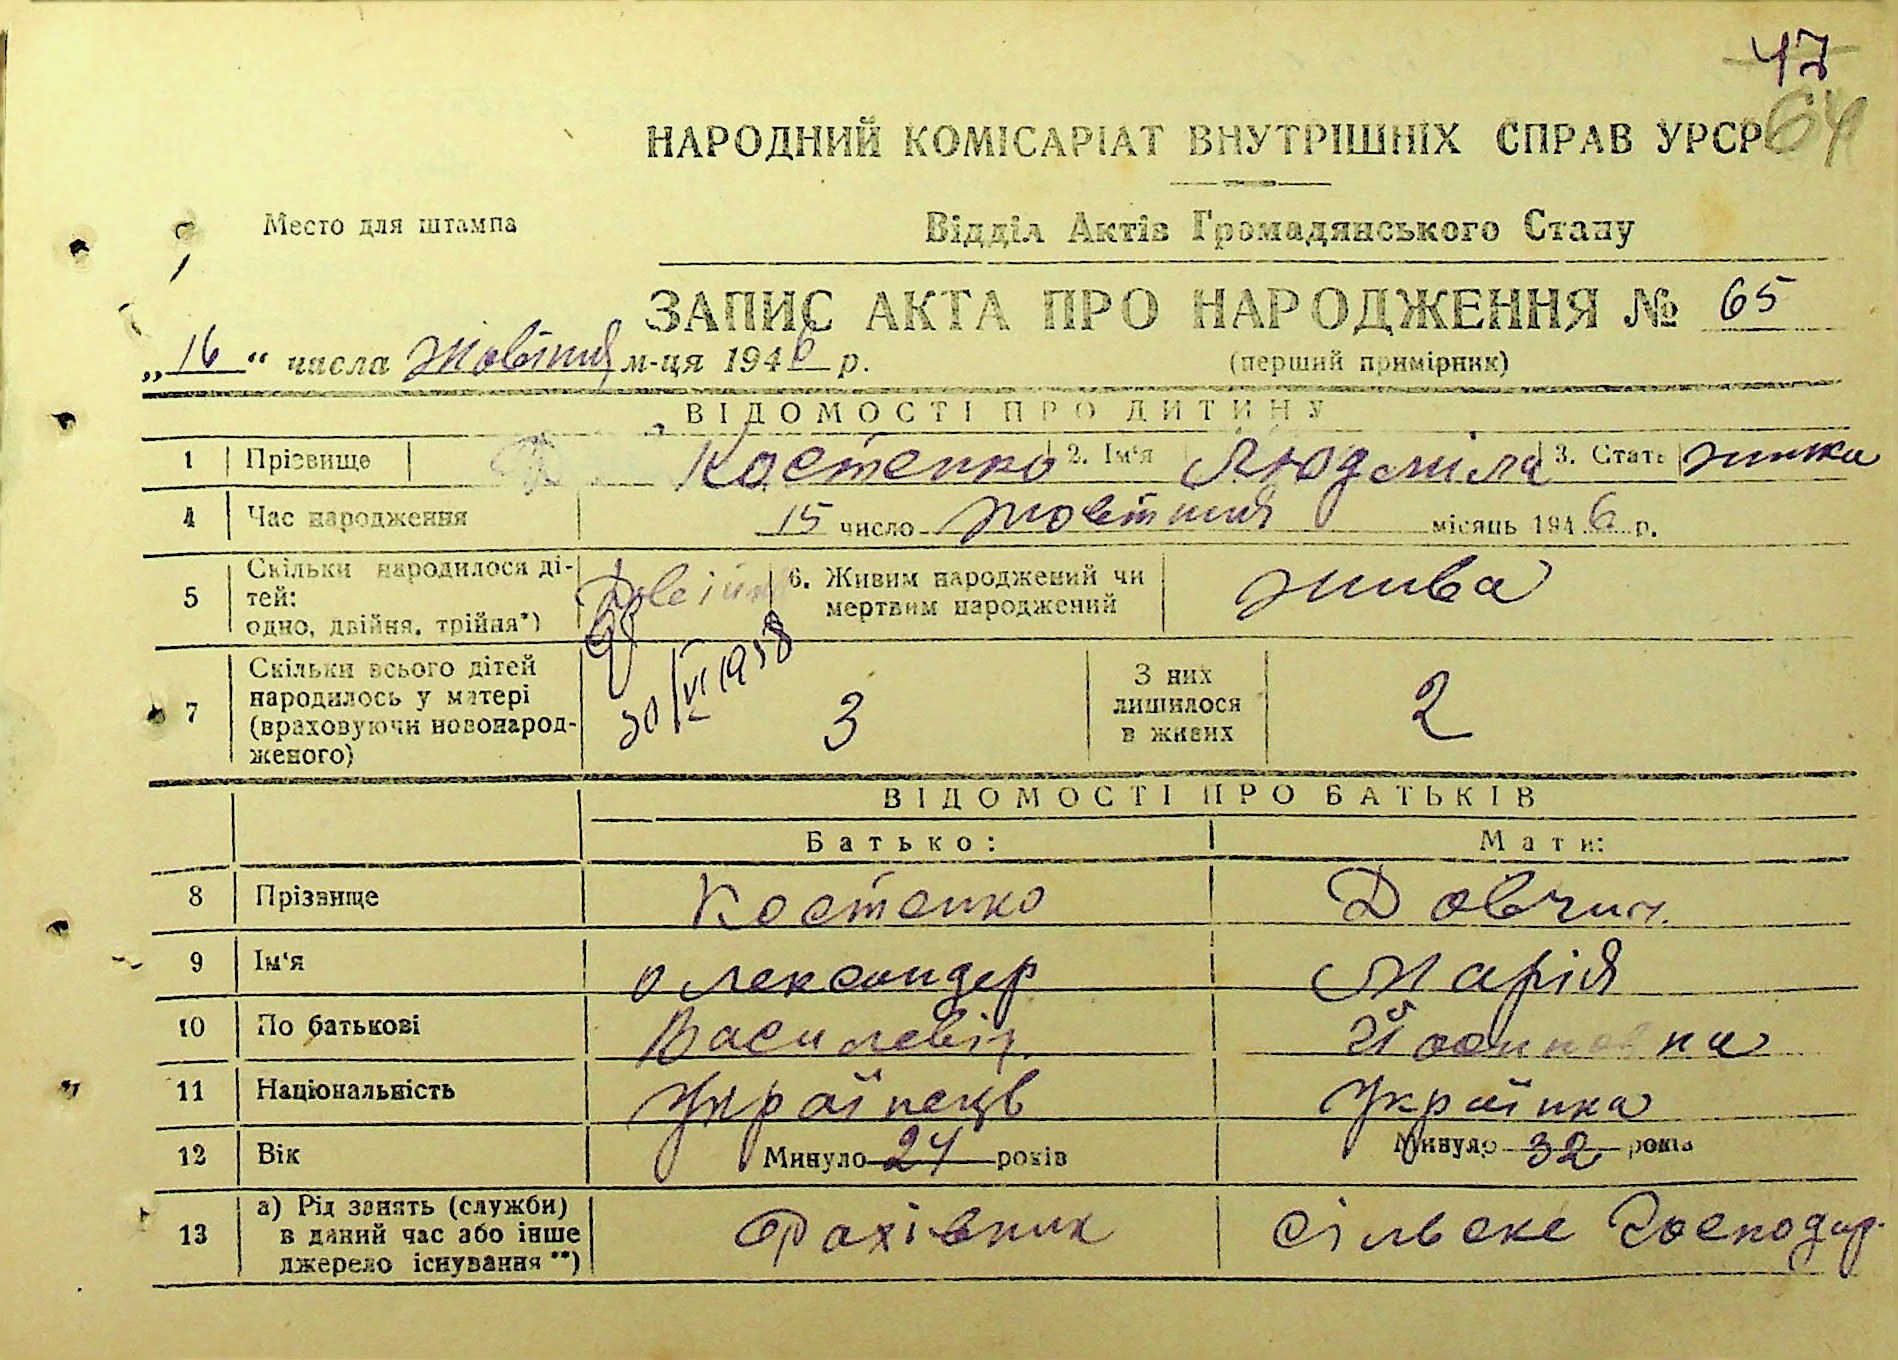 47
64
НАРОДНИЙ КОМІСАРІАТ ВНУТРІШНІХ СПРАВ УРСР
Место для штампа
Відділ Актів Громадянського Стану
ЗАПИС АКТА ПРО НАРОДЖЕННЯ № 65
„16“ числа жовтня м-ця 1946 р.
(перший примірник)
ВІДОМОСТІ ПРО ДИТИНУ
1 Прізвище Костенко 2. Ім‘я Людміла 3. Стать жинка
4 Час народження 15 число жовтня місяць 1946 р.
5 Скільки народилося ді-
тей:
одно, двійня, трійня*)
6. Живим народжений чи
мертвим народжений
жива
30/VI 1958
7 Скільки всього дітей
народилось у матері
(враховуючи новонарод-
женого)
3
З них
лишилося
в живих
2
ВІДОМОСТІ ПРО БАТЬКІВ
Батько: Мати:
8 Прізвище Костенко Довчич
9 Ім‘я Олександер Марія
10 По батькові Василевіч Йосиповна
11 Національність Українець Українка
12 Вік Минуло 24 років Минуло 32 років
13 а) Рід занять (служби)
в даний час або інше
джерело існування **)
Фахівник Сільске Господар.